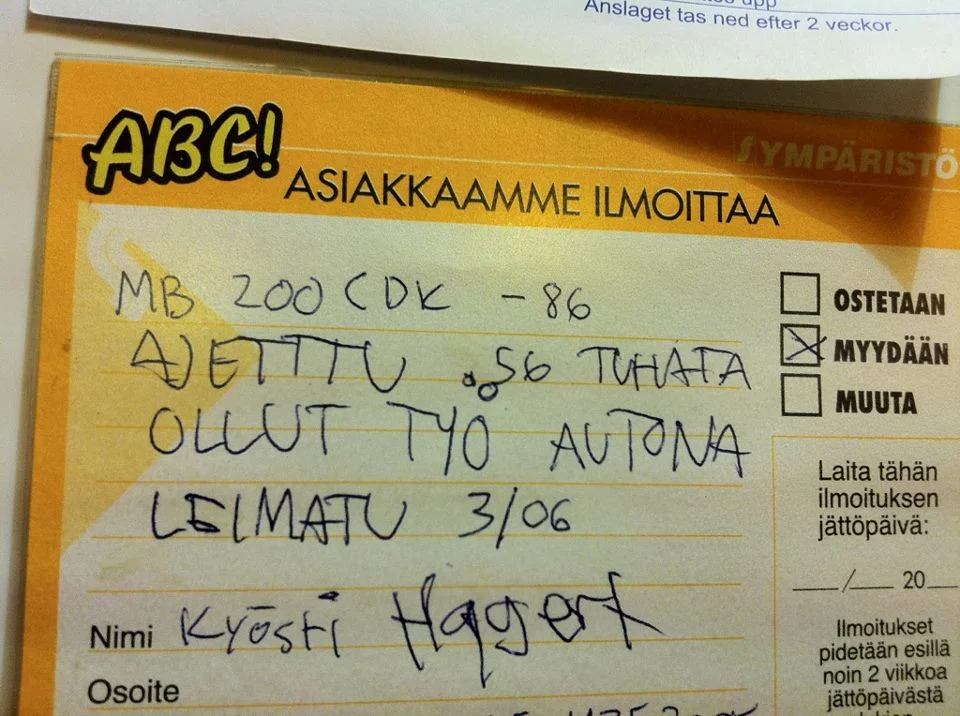 Anslaget tas ned efter 2 veckor.
SYMPÄRISTÖ
ABC!
ASIAKKAAMME ILMOITTAA
MB 200 CDK -86
AJETTTU 56 TUHATA
OLLUT TYÖ AUTONA
LEIMATU 3/06
OSTETAAN
MYYDÄÄN
MUUTA
Laita tähän
ilmoituksen
jättöpäivä:
___/___ 20__
Ilmoitukset
pidetään esillä
noin 2 viikkoa
jättöpäivästä
Nimi Kyösti Haggert
Osoite